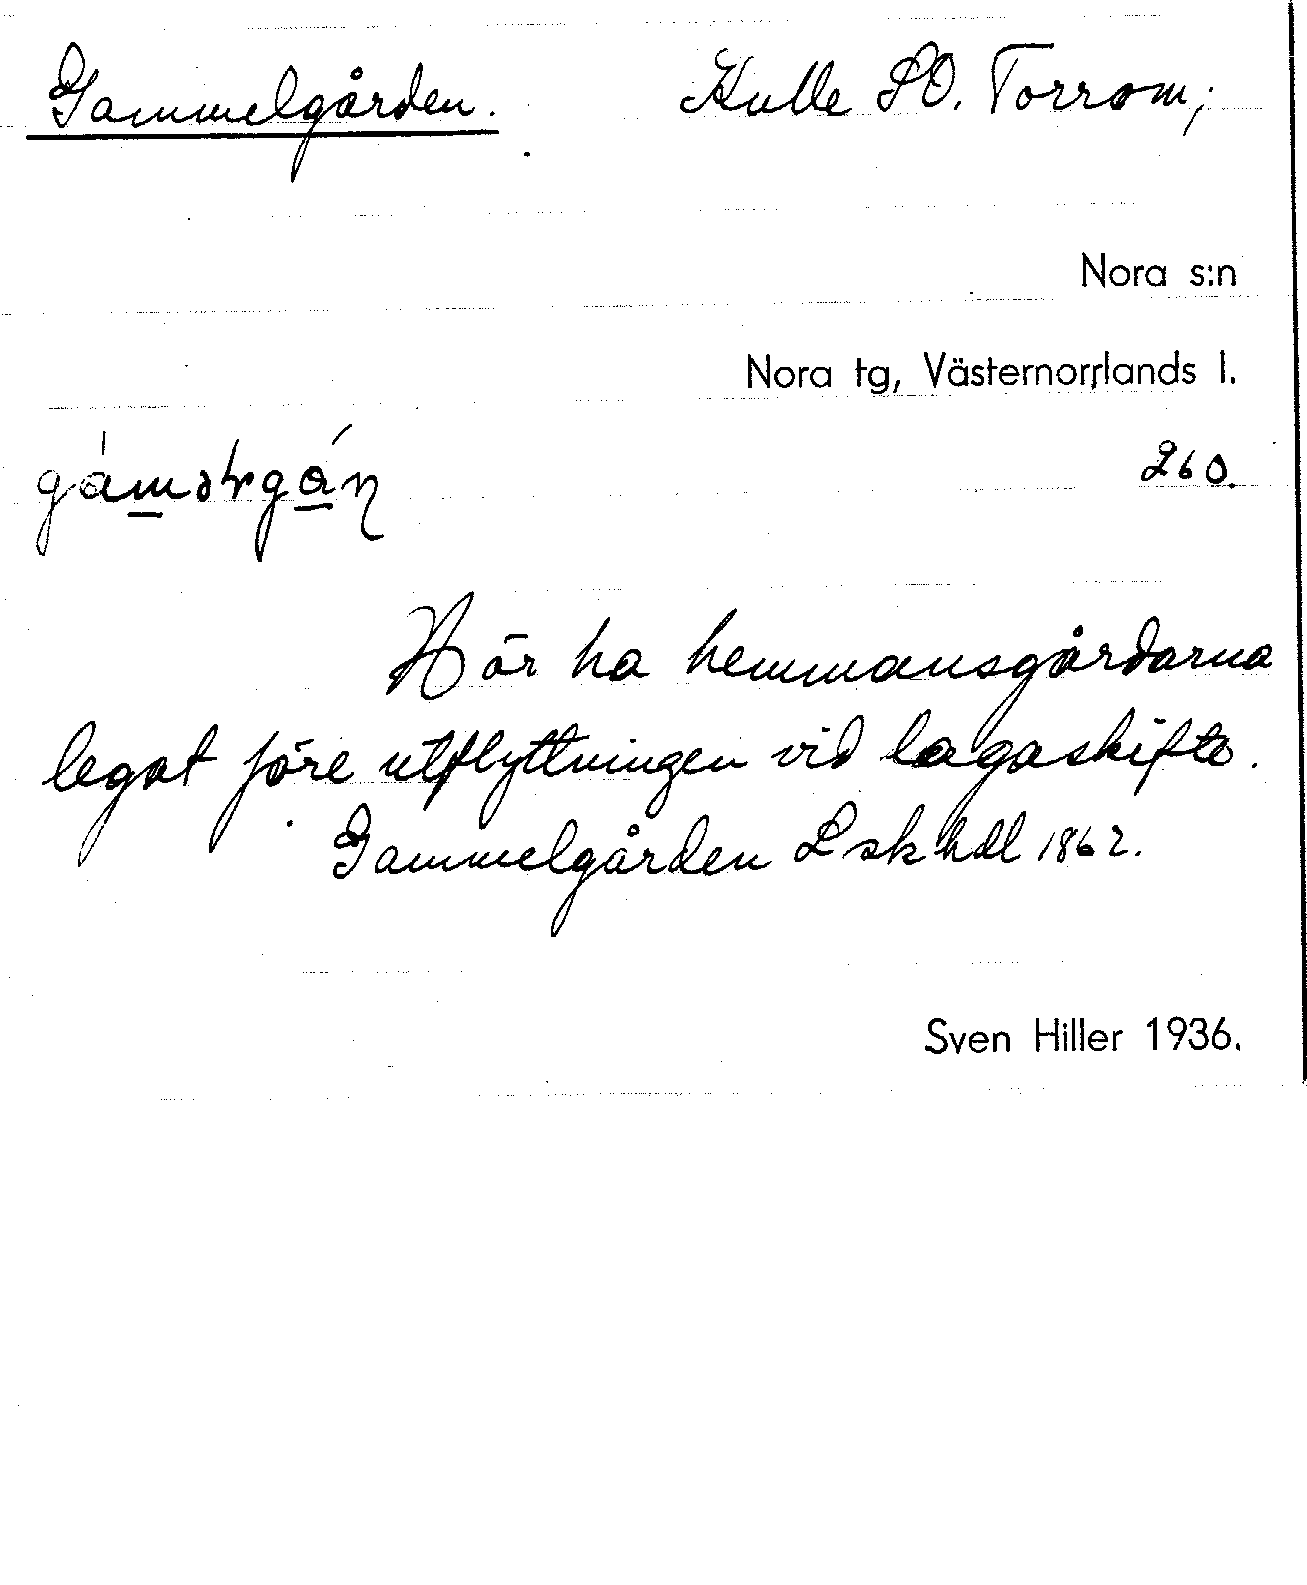 Gammelgården. Kulle SO. Torrom;
Nora s:n
Nora tg, Västernorrlands l.
260.
Här ha hemmansgårdarna
legat före utflyttningen vid lagaskifte.
Gammelgården Lskhdl 1862.
Sven Hiller 1936.